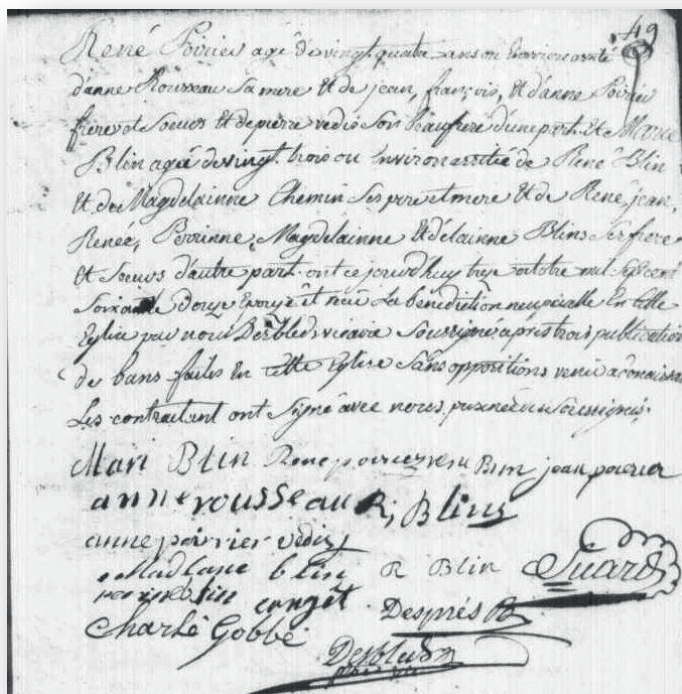 49
René Poirier agé de vingt quatre ans ou Environ assité
d'anne Rousseau Sa mere Et de jean, françois, et d'anne Poirier
frere et Soeurs Et de pierre vedis Son beaufrere d'une part. Et Marie
Blin agée de vingt trois ou Environ assitée de René Blin
Et de Magdelainne Chemin Ses pere et mere Et de René, jean,
Renée, Perrinne, Magdelainne Et d'élainne Blins Ses frere
Et Soeurs d'autre part. ont ce jourd'huy octobre mil Sept cent
Soixante Douze Epouzé et reçu La bénédiction nuptialle En cette
Eglise par nous Desbleds vicaire Soussigné après trois publication
de bans faites En cette Eglise Sans oppositions venir a
Les contractant ont Signé avec nous
Mari Blin René Blin jean poirier
anne rousseau R, Blins
anne poirier vedis
Madlane blin R Blin Suard
blin Després
Charle Gobbé
Desbleds